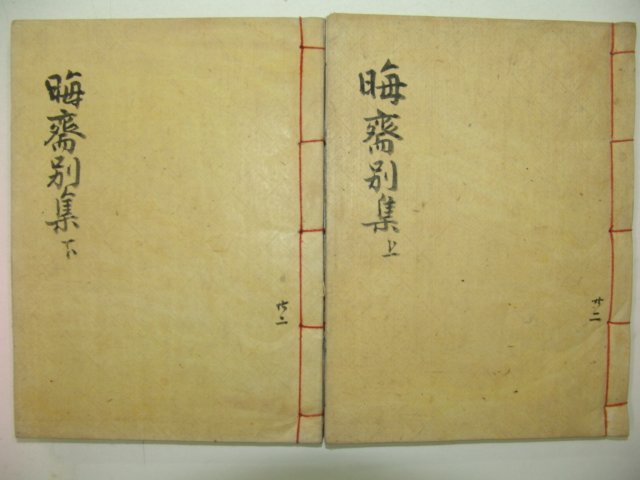 晦齋別集上
共二
晦齋別集下
共二